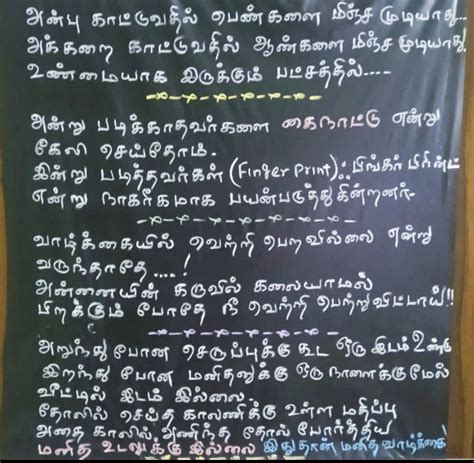 அன்பு காட்டுவதில் பெண்களை மிஞ்ச முடியாது...
அக்கறை காட்டுவதில் ஆண்களை மிஞ்ச முடியாது
உண்மையாக இருக்கும் பட்சத்தில்----
அன்று படிக்காதவர்களை கைநாட்டு என்று
கேலி செய்தோம்.
இன்று படித்தவர்கள் (Finger Print):. பிங்கர் பிரின்ட்
என்று நாகரீகமாக பயன்படுத்துகின்றனர்.
வாழ்க்கையில் வெற்றி பெறவில்லை என்று
வருந்தாதே ....!
அன்னையின் கருவில் கலையாமல்
பிறக்கும் போதே நீ வெற்றி பெற்று விட்டாய்!!
அறுந்து போன செருப்புக்கு கூட ஒரு இடம் உண்டு
இறந்து போன மனிதனுக்கு ஒரு நாளைக்கு மேல்
வீட்டில் இடம் இல்லை.
தோலில் செய்த காலணிக்கு உள்ள மதிப்பு
அதை காலில் அணிந்த தோல் போர்த்திய
மனித உடலுக்கு இல்லை இதுதான் மனித வாழ்க்கை!